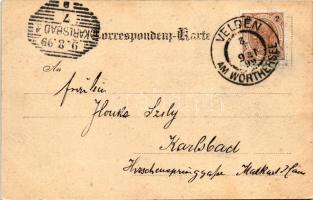 9.8.99
KARLSBAD
7
Correspondenz-Karte
VELDEN
AM WÖRTHERSEE
An
Fräulein
Ilonka Szily
Karlsbad
Hirschensprunggasse